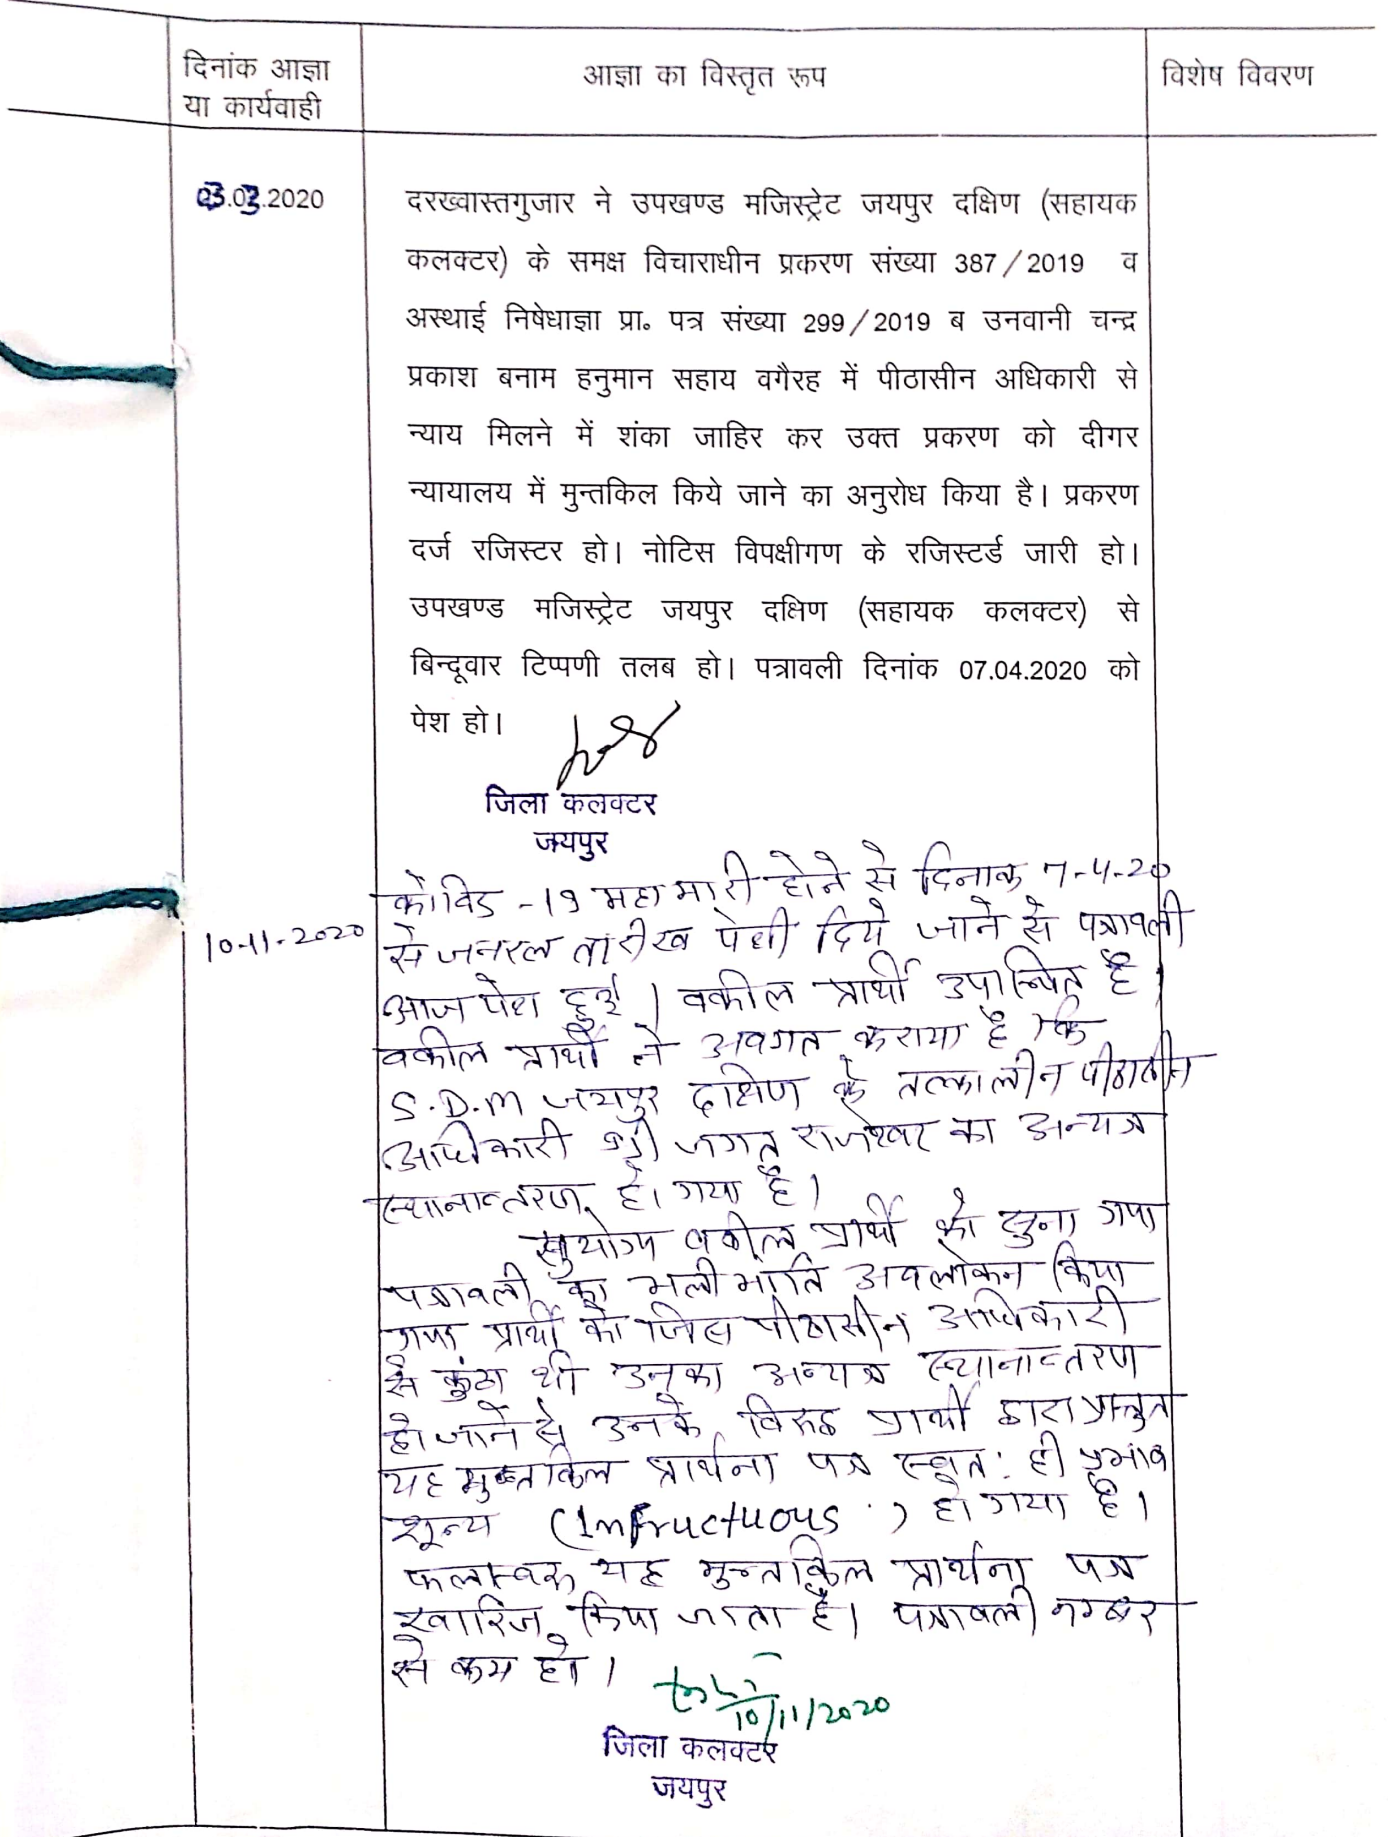 दिनांक आज्ञा
या कार्यवाही
आज्ञा का विस्तृत रूप
विशेष विवरण
03.03.2020
दरख्वास्तगुजार ने उपखण्ड मजिस्ट्रेट जयपुर दक्षिण (सहायक
कलक्टर) के समक्ष विचाराधीन प्रकरण संख्या 387/2019 व
अस्थाई निषेधाज्ञा प्रा॰ पत्र संख्या 299/2019 ब उनवानी चन्द्र
प्रकाश बनाम हनुमान सहाय वगैरह में पीठासीन अधिकारी से
न्याय मिलने में शंका जाहिर कर उक्त प्रकरण को दीगर
न्यायालय में मुन्तकिल किये जाने का अनुरोध किया है। प्रकरण
दर्ज रजिस्टर हो। नोटिस विपक्षीगण के रजिस्टर्ड जारी हो।
उपखण्ड मजिस्ट्रेट जयपुर दक्षिण (सहायक कलक्टर) से
बिन्दूवार टिप्पणी तलब हो। पत्रावली दिनांक 07.04.2020 को
पेश हो।
जिला कलक्टर
जयपुर
कोविड -19 महामारी होने से दिनाक 7-4-20
10-11-2020
से जनरल तारीख पेशी दिये जाने से पत्रावली
आज पेश हुई। वकील प्रार्थी उपस्थित है।
वकील प्रार्थी ने अवगत कराया है कि
S.D.M जयपुर दक्षिण के तत्कालीन पीठासीन
अधिकारी श्री जगत राजेश्वर का अन्यत्र
स्थानान्तरण हो गया है।
सुयोग्य वकील प्रार्थी को सुना गया
पत्रावली का भली भांति अवलोकन किया
गया प्रार्थी को जिस पीठासीन अधिकारी
से कुंठा थी उनका अन्यत्र स्थानान्तरण
हो जाने से उनके विरुद्ध प्रार्थी द्वारा प्रस्तुत
यह मुन्तकिल प्रार्थना पत्र स्वत: ही प्रभाव
शून्य (Infructuous) हो गया है।
फलस्वरू यह मुन्तकिल प्रार्थना पत्र
खारिज किया जाता है। पत्रावली नम्बर
से कम हो।
10/11/2020
जिला कलक्टर
जयपुर